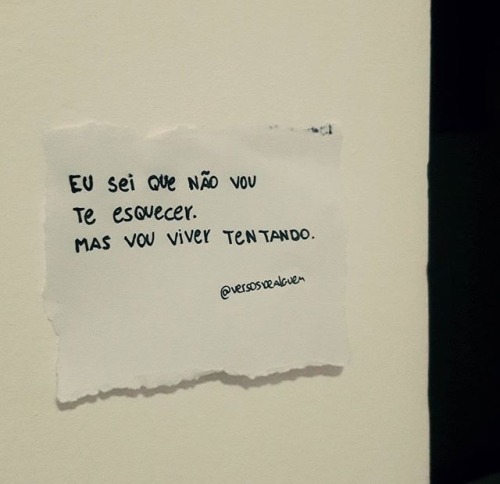 EU SEI QUE NÃO VOU
TE ESQUECER.
MAS VOU VIVER TENTANDO.
@VERSOSDEALGUEM